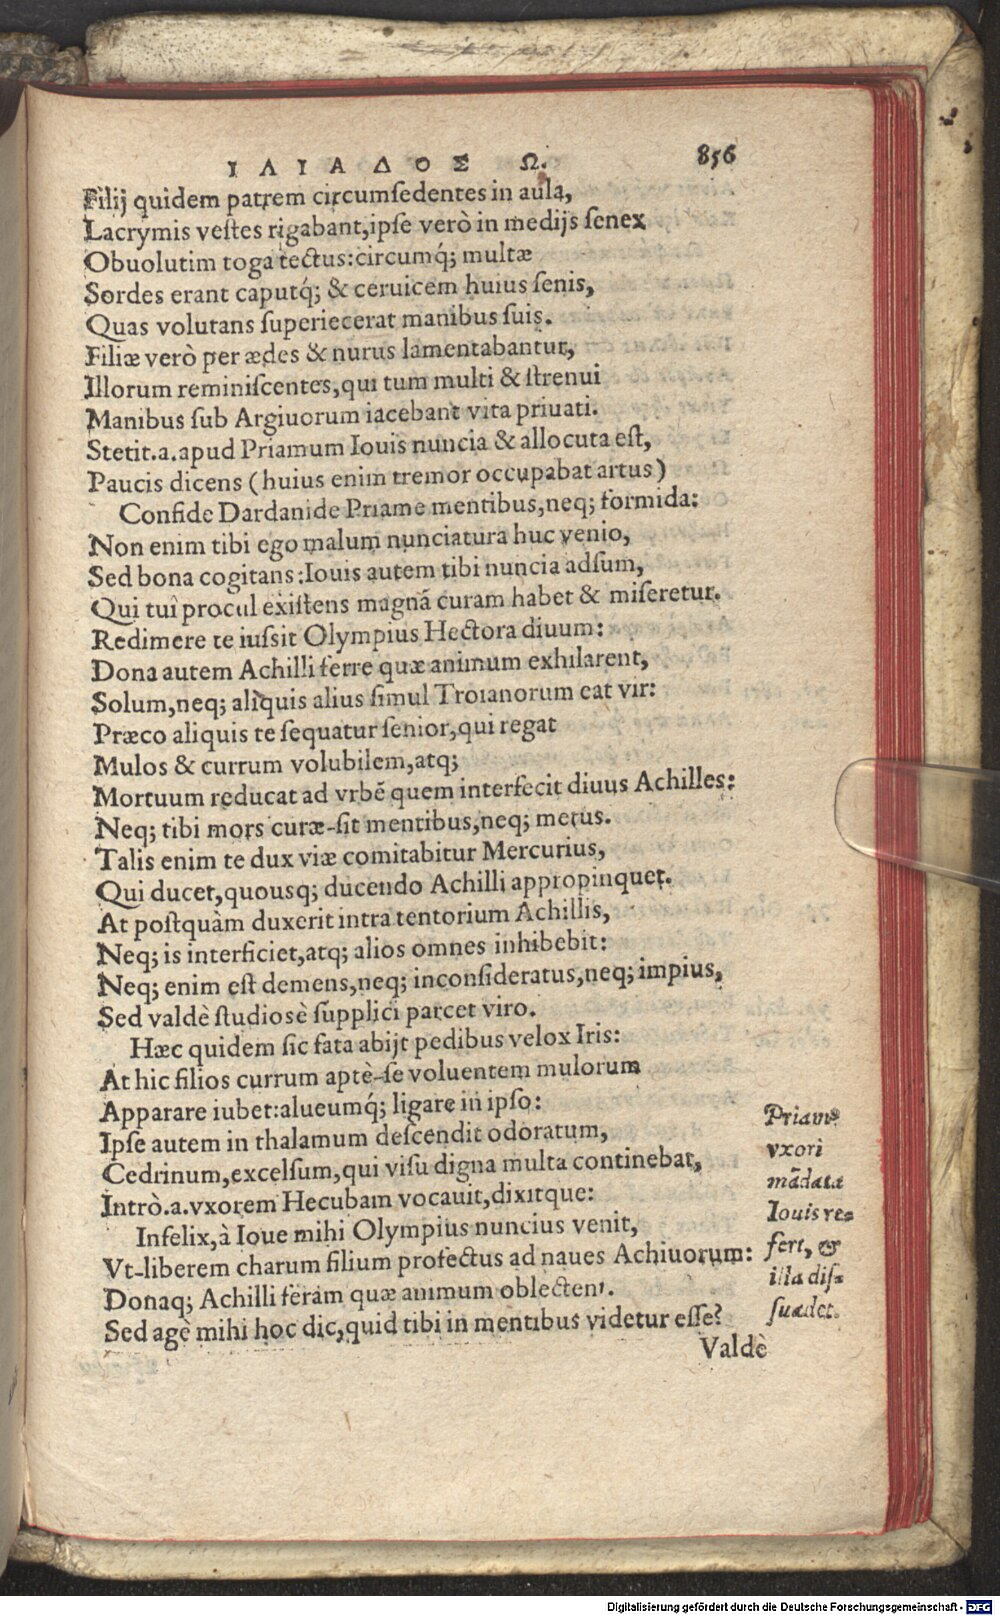 ΙΛΙΑΔΟΣ Ω. 856
Filij quidem patrem circumſedentes in aula,
Lacrymis veſtes rigabant,ipſe verò in medijs ſenex
Obuolutim toga tectus:circumq́; multæ
Sordes erant caputq́; & ceruicem huius ſenis,
Quas volutans ſuperiecerat manibus ſuis.
Filiæ verò per ædes & nurus lamentabantur,
Illorum reminiſcentes,qui tum multi & ſtrenui
Manibus ſub Argiuorum iacebant vita priuati.
Stetit.a.apud Priamum Iouis nuncia & allocuta eſt,
Paucis dicens (huius enim tremor occupabat artus)
Confide Dardanide Priame mentibus,neq; formida:
Non enim tibi ego malum nunciatura huc venio,
Sed bona cogitans:Iouis autem tibi nuncia adſum,
Qui tui procul exiſtens magnā curam habet & miſeretur.
Redimere te iuſsit Olympius Hectora diuum:
Dona autem Achilli ferre quæ animum exhilarent,
Solum,neq; aliquis alius ſimul Troianorum eat vir:
Præco aliquis te ſequatur ſenior,qui regat
Mulos & currum volubilem,atq;
Mortuum reducat ad vrbē quem interfecit diuus Achilles:
Neq; tibi mors curæ-ſit mentibus,neq; metus.
Talis enim te dux viæ comitabitur Mercurius,
Qui ducet,quousq; ducendo Achilli appropinquet.
At poſtquàm duxerit intra tentorium Achillis,
Neq; is interficiet,atq; alios omnes inhibebit:
Neq; enim eſt demens,neq; inconſideratus,neq; impius,
Sed valdè ſtudiosè ſupplici parcet viro.
Hæc quidem ſic fata abijt pedibus velox Iris:
At hic filios currum aptè-ſe voluentem mulorum
Apparare iubet:alueumq́; ligare in ipſo:
Ipſe autem in thalamum deſcendit odoratum,
Cedrinum,excelſum,qui viſu digna multa continebat,
Intrò.a.vxorem Hecubam vocauit,dixitque:
Infelix,à Ioue mihi Olympius nuncius venit,
Vt-liberem charum filium profectus ad naues Achiuorum:
Donaq; Achilli feram quæ animum oblectent.
Sed age mihi hoc dic,quid tibi in mentibus videtur eſſe?
Valdè
Priamꝰ
vxori
mādata
Iouis re-
fert, &
illa diſ-
ſuadet.
Digitalisierung gefördert durch die Deutsche Forschungsgemeinschaft - DFG